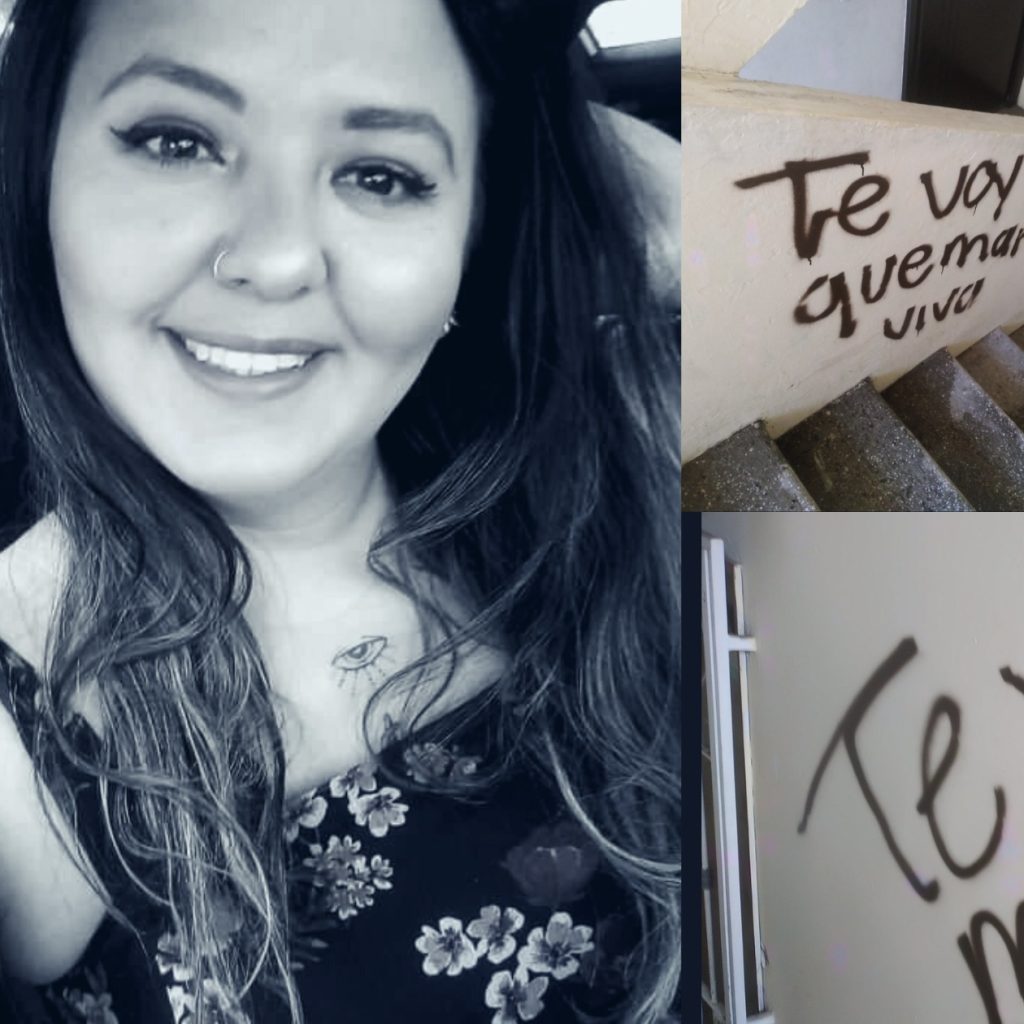 Te voy
quemar
viva
Te